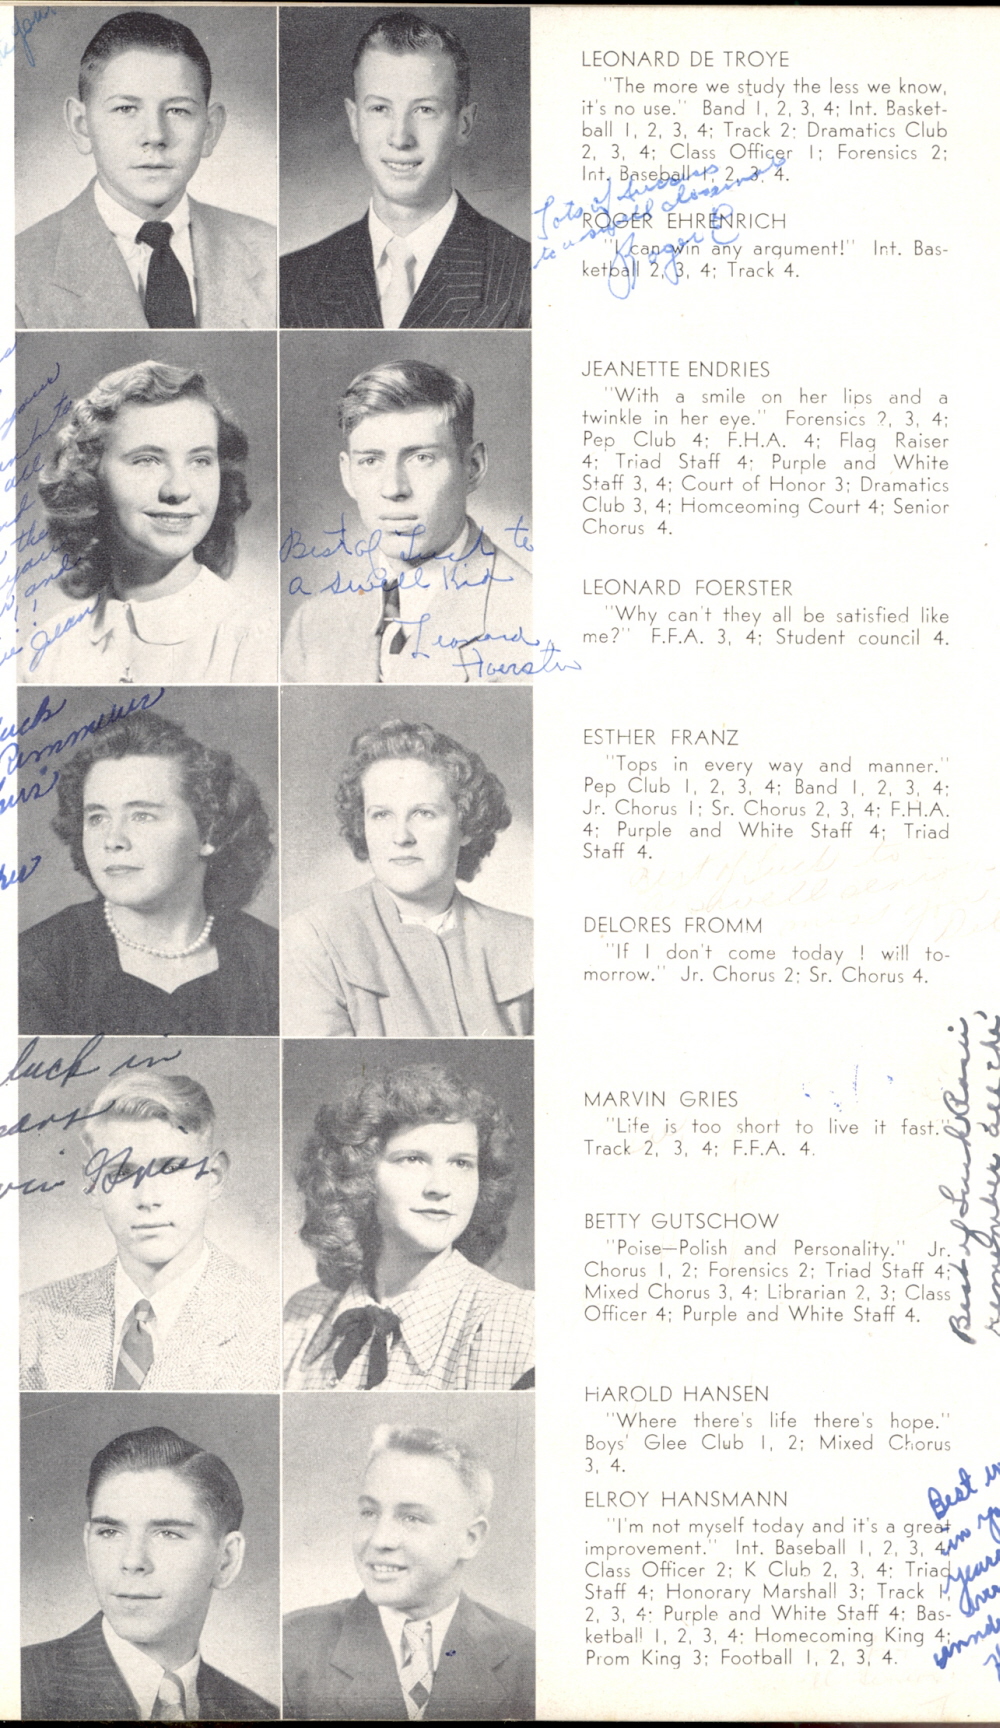 LEONARD DE TROYE
"The more we study the less we know,
it's no use." Band 1, 2, 3, 4; Int. Basket-
ball 1, 2, 3, 4; Track 2; Dramatics Club
2, 3, 4; Class Officer 1; Forensics 2;
Int. Baseball 1, 2, 3, 4.
Lots of success
to a swell classmate
Roger E
ROGER EHRENRICH
"I can win any argument!" Int. Bas-
ketball 2, 3, 4; Track 4.
JEANETTE ENDRIES
"With a smile on her lips and a
twinkle in her eye." Forensics 2, 3, 4;
Pep Club 4; F.H.A. 4; Flag Raiser
4; Triad Staff 4; Purple and White
Staff 3, 4; Court of Honor 3; Dramatics
Club 3, 4; Homceoming Court 4; Senior
Chorus 4.
your
all
the
your
and
Jean
Best of Luck to
a swell kid
Leonard
Foerster
LEONARD FOERSTER
"Why can't they all be satisfied like
me?" F.F.A. 3, 4; Student council 4.
ESTHER FRANZ
"Tops in every way and manner."
Pep Club 1, 2, 3, 4; Band 1, 2, 3, 4;
Jr. Chorus 1; Sr. Chorus 2, 3, 4; F.H.A.
4; Purple and White Staff 4; Triad
Staff 4.
DELORES FROMM
"If I don't come today I will to-
morrow." Jr. Chorus 2; Sr. Chorus 4.
luck in
Gries
MARVIN GRIES
"Life is too short to live it fast."
Track 2, 3, 4; F.F.A. 4.
BETTY GUTSCHOW
"Poise—Polish and Personality." Jr.
Chorus 1, 2; Forensics 2; Triad Staff 4;
Mixed Chorus 3, 4; Librarian 2, 3; Class
Officer 4; Purple and White Staff 4.
Best of Luck Rosie
remember all the
HAROLD HANSEN
"Where there's life there's hope."
Boys' Glee Club 1, 2; Mixed Chorus
3, 4.
ELROY HANSMANN
"I'm not myself today and it's a great
improvement." Int. Baseball 1, 2, 3, 4;
Class Officer 2; K Club 2, 3, 4; Triad
Staff 4; Honorary Marshall 3; Track 1,
2, 3, 4; Purple and White Staff 4; Bas-
ketball 1, 2, 3, 4; Homecoming King 4;
Prom King 3; Football 1, 2, 3, 4.
Best
in
years